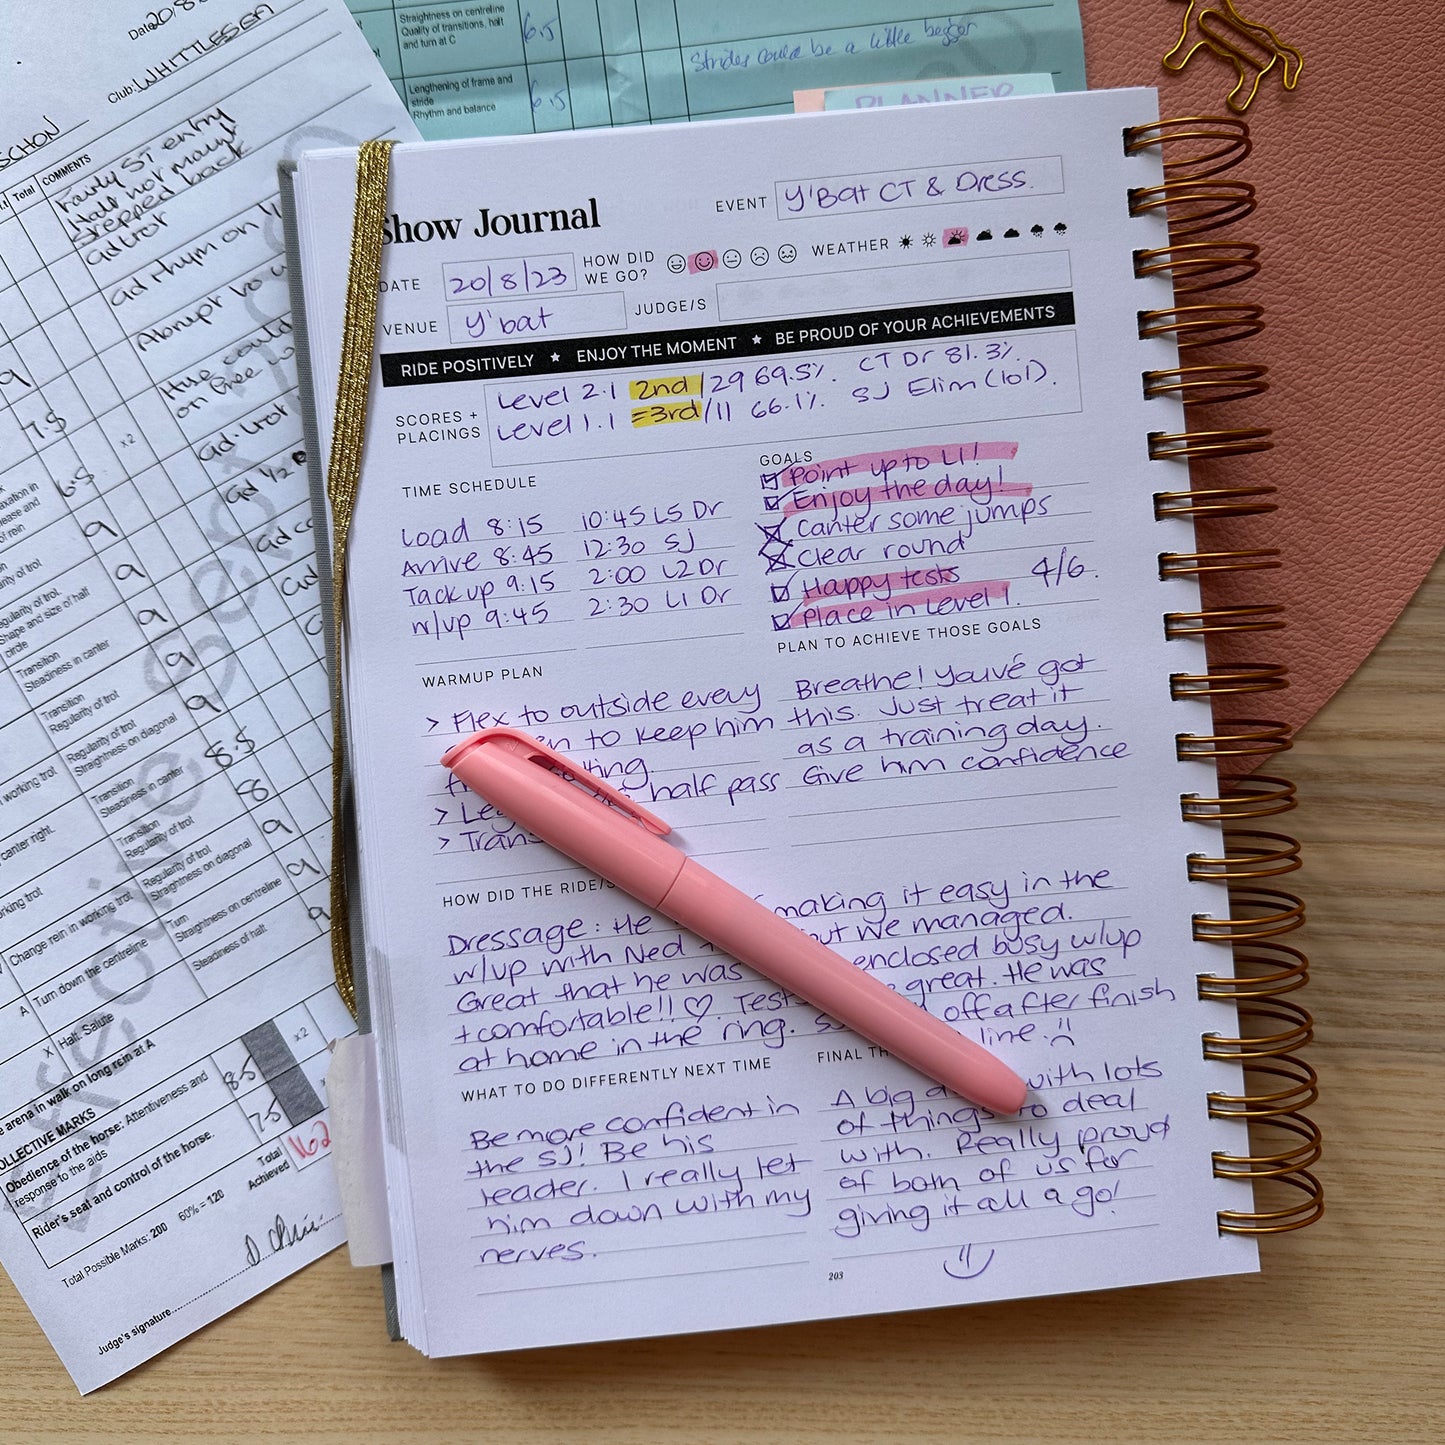 Date 20/8
Club: WHITTLESEA
SCHON
Total
COMMENTS
Fairly ST entry
Halt not maint.
Stepped back
Gd trot
Gd rhythm on
9
7.5
6.5
x2
Gd trot
Gd 1/2
9
9
9
9
9
8.5
8
9
9
9
Transition
Steadiness in canter
Transition
Regularity of trot
Regularity of trot
Straightness on diagonal
Transition
Steadiness in canter
Transition
Regularity of trot
Regularity of trot
Straightness on diagonal
Turn
Straightness on centreline
Steadiness of halt
working trot
canter right.
Change rein in working trot
A Turn down the centreline
X Halt. Salute
arena in walk on long rein at A
COLLECTIVE MARKS
Obedience of the horse: Attentiveness and
response to the aids
8.5
x2
Rider's seat and control of the horse.
7.5
Total
Achieved
162
Total Possible Marks: 200 60% = 120
Judge's signature
Straightness on centreline
Quality of transitions, halt
and turn at C
6.5
Lengthening of frame and
stride
Rhythm and balance
6.5
Strides could be a little bigger
PLANNER
Show Journal
EVENT Y'Bat CT & Dress.
DATE 20/8/23
HOW DID
WE GO?
WEATHER
VENUE Y'bat
JUDGE/S
RIDE POSITIVELY ★ ENJOY THE MOMENT ★ BE PROUD OF YOUR ACHIEVEMENTS
SCORES +
PLACINGS
Level 2.1 2nd/29 69.5%. CT Dr 81.3%.
Level 1.1 =3rd/11 66.1%. SJ Elim (lol).
TIME SCHEDULE
Load 8:15
Arrive 8:45
Tack up 9:15
w/up 9:45
10:45 L5 Dr
12:30 SJ
2:00 L2 Dr
2:30 L1 Dr
GOALS
Point up to L1!
Enjoy the day!
Canter some jumps
Clear round
Happy tests 4/6.
Place in Level 1.
WARMUP PLAN
> Flex to outside every
to keep him
half pass
> Trans
PLAN TO ACHIEVE THOSE GOALS
Breathe! You've got
this. Just treat it
as a training day.
Give him confidence
HOW DID THE RIDE/S
Dressage: He making it easy in the
w/up with Ned but we managed.
Great that he was enclosed busy w/up
+ comfortable!! ♡. Test great. He was
at home in the ring. SJ off after finish
line. :(
WHAT TO DO DIFFERENTLY NEXT TIME
Be more confident in
the SJ! Be his
leader. I really let
him down with my
nerves.
FINAL TH
A big with lots
of things to deal
with. Really proud
of both of us for
giving it all a go!
203